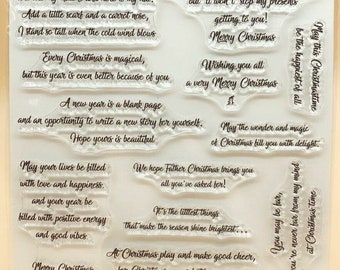 Add a little scarf and a carrot nose,
I stand so tall when the cold wind blows
Every Christmas is magical,
but this year is even better because of you
A new year is a blank page
and an opportunity to write a new story for yourself.
Hope yours is beautiful.
May your lives be filled
with love and happiness,
and your year be
filled with positive energy
and good vibes
Merry Christmas
but it won't stop my presents
getting to you!
Merry Christmas
Wishing you all
a very Merry Christmas
May the wonder and magic
of Christmas fill you with delight.
We hope Father Christmas brings you
all you've asked for!
It's the littlest things
that make the season shine brightest...
At Christmas play and make good cheer,
for Christmas
May this Christmastime
be the happiest of all
You may be far,
but never far from my mind
at Christmas time